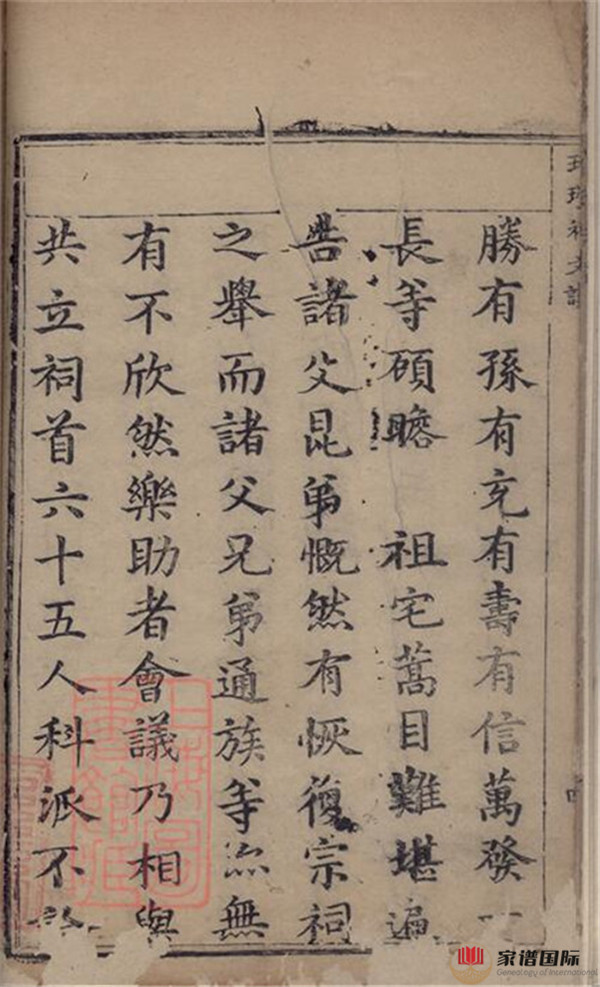 勝有孫有充有壽有信萬發
長等碩瞻　祖宅蒿目難堪遍
告諸父昆弟慨然有恢復宗祠
之舉而諸父兄弟通族等亦無
有不欣然樂助者會議乃相與
共立祠首六十五人科派不
上海圖書館藏
家谱国际
Genealogy of International